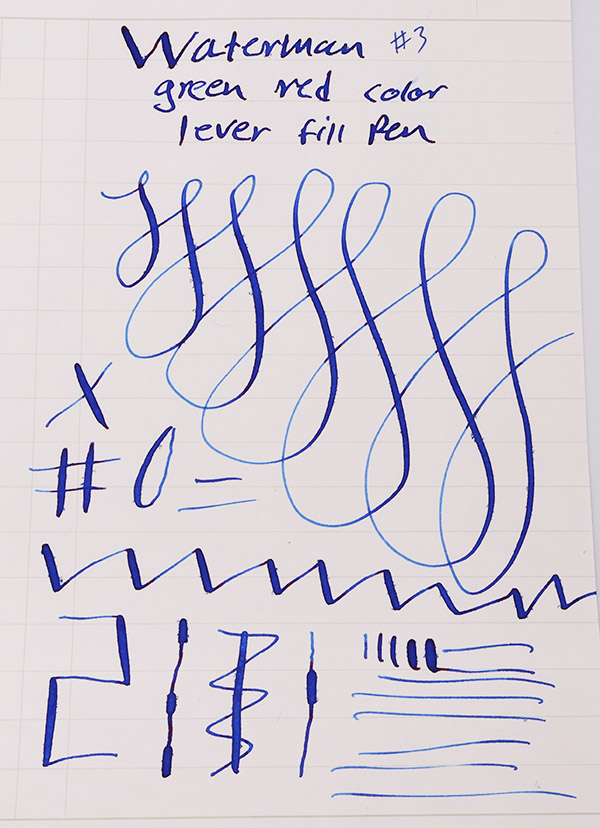 Waterman #3
green red color
lever fill Pen
X
# 0 =